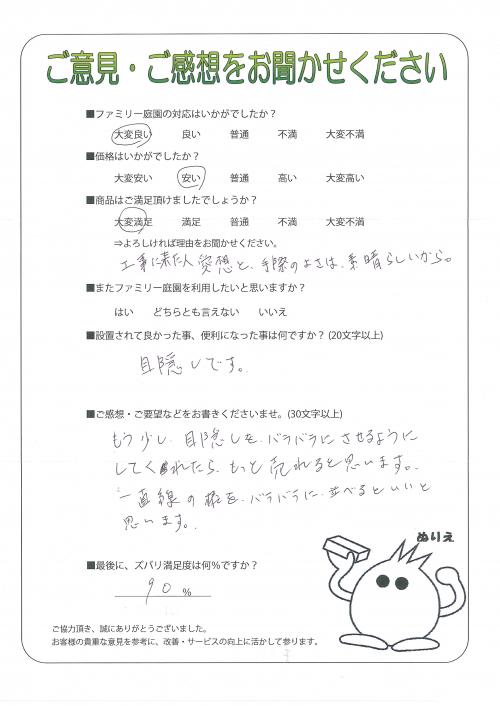 ご意見・ご感想をお聞かせください
■ファミリー庭園の対応はいかがでしたか？
大変良い 良い 普通 不満 大変不満
■価格はいかがでしたか？
大変安い 安い 普通 高い 大変高い
■商品はご満足頂けましたでしょうか？
大変満足 満足 普通 不満 大変不満
⇒よろしければ理由をお聞かせください。
工事に来た人 愛想と、手際のよさは、素晴らしいから。
■またファミリー庭園を利用したいと思いますか？
はい どちらとも言えない いいえ
■設置されて良かった事、便利になった事は何ですか？(20文字以上)
目隠しです。
■ご感想・ご要望などをお書きくださいませ。(30文字以上)
もう少し、目隠しを、バラバラにさせるように
してくれたら、もっと売れると思います。
一直線の板を、バラバラに、並べるといいと
思います。
ぬりえ
■最後に、ズバリ満足度は何％ですか？
90 %
ご協力頂き、誠にありがとうございました。
お客様の貴重な意見を参考に、改善・サービスの向上に活かして参ります。